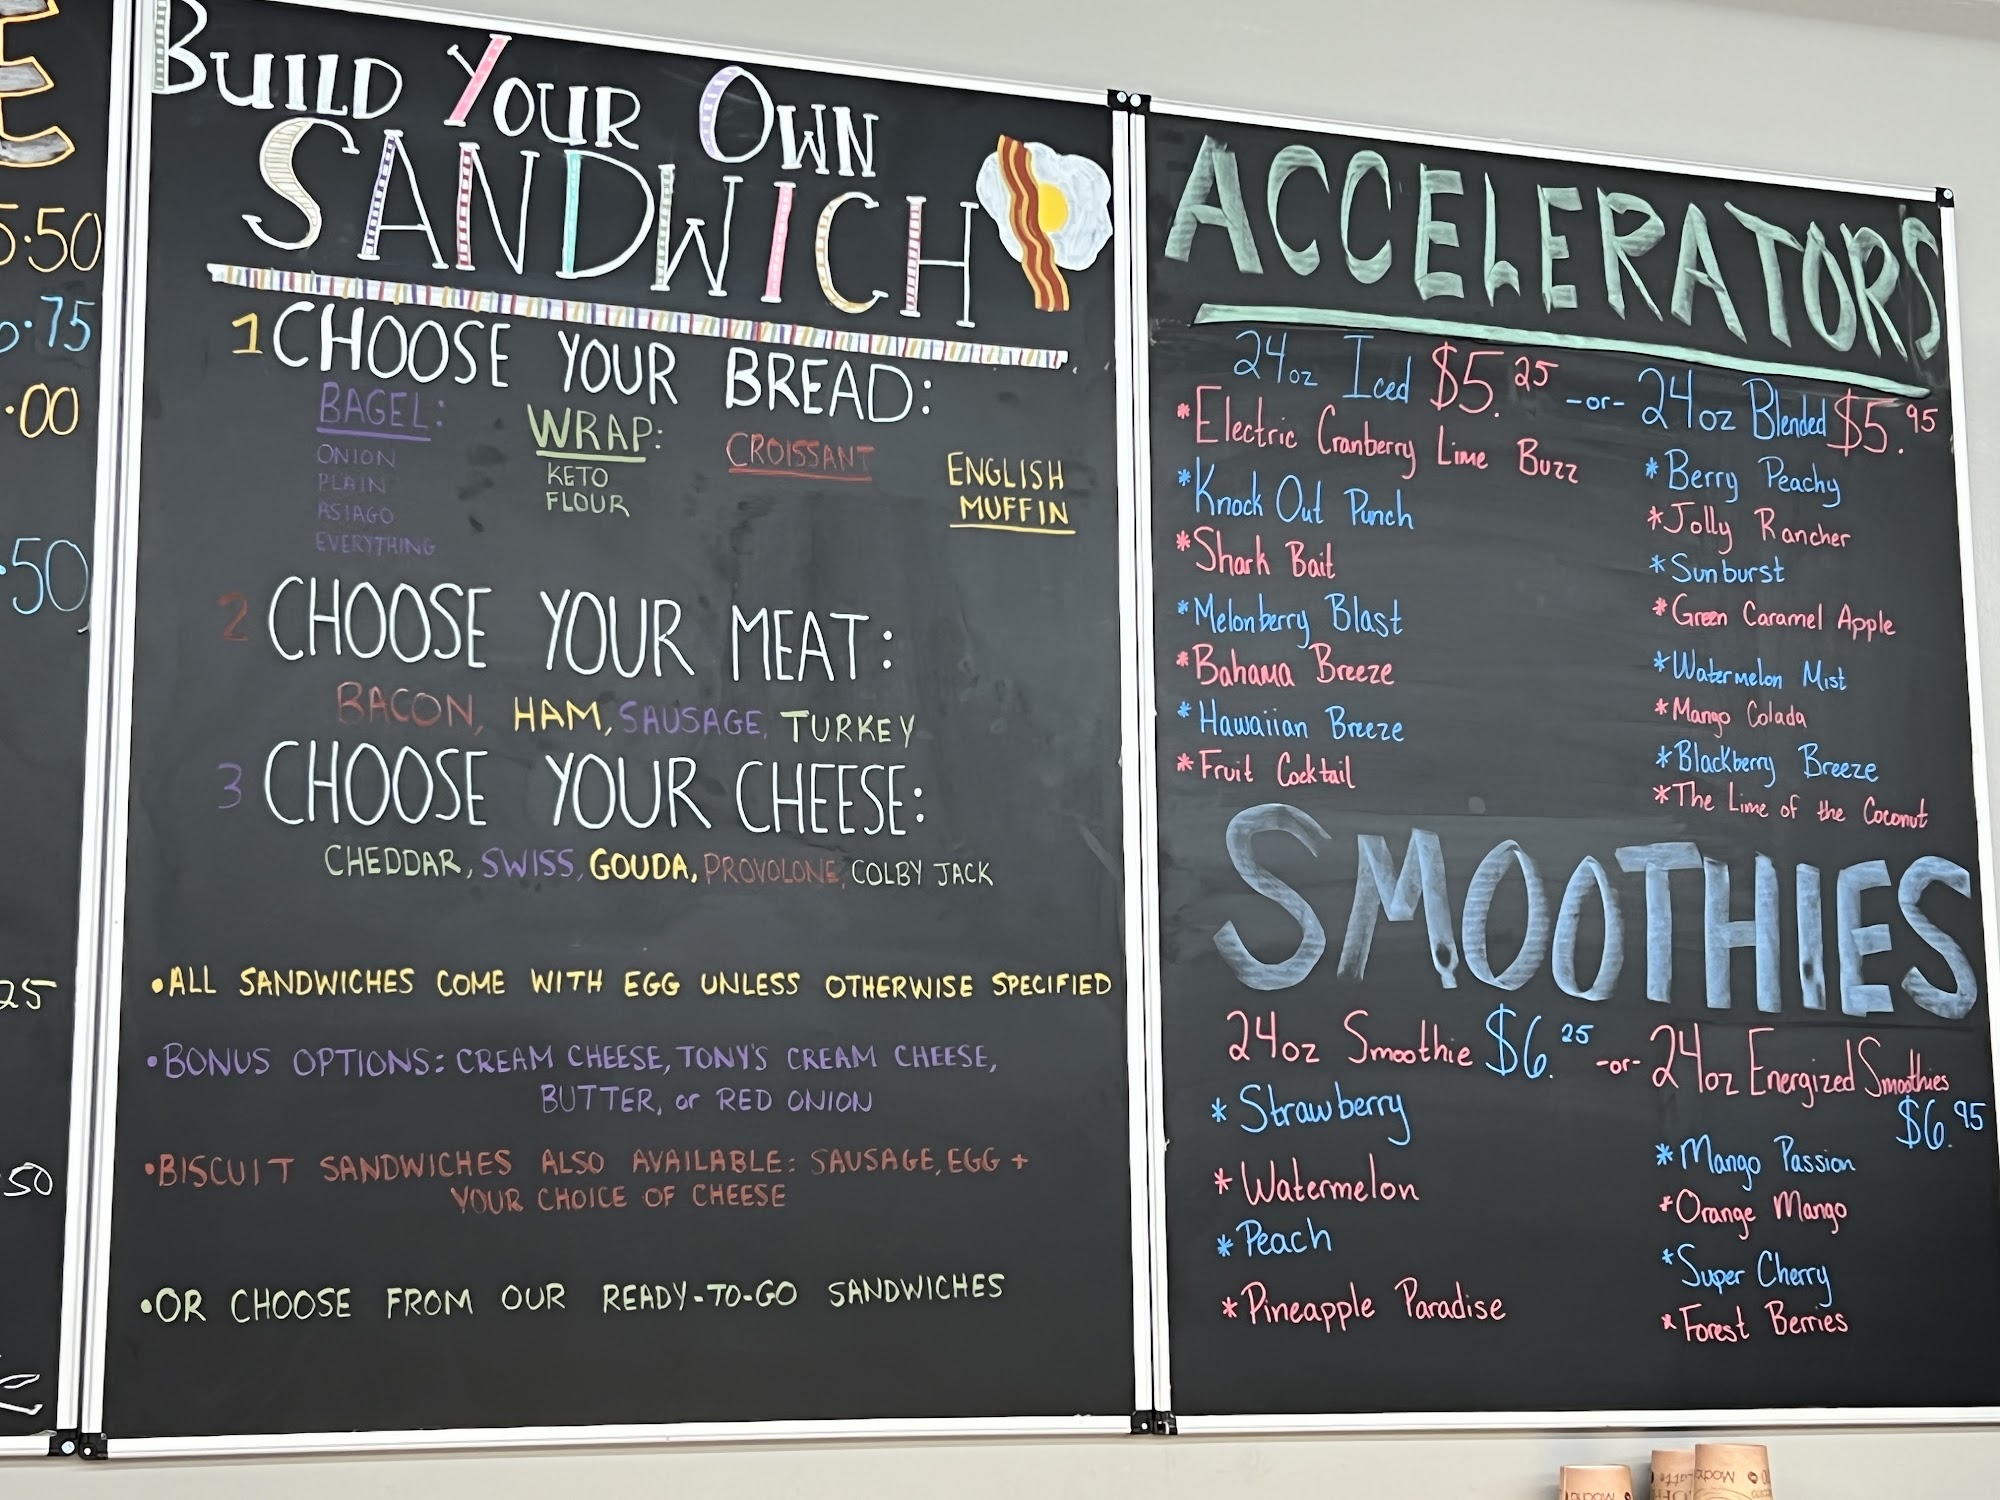 5.50
.75
.00
.50
25
.50
BUILD YOUR OWN
SANDWICH
1 CHOOSE YOUR BREAD:
BAGEL:
ONION
PLAIN
ASIAGO
EVERYTHING
WRAP:
KETO
FLOUR
CROISSANT
ENGLISH
MUFFIN
2 CHOOSE YOUR MEAT:
BACON, HAM, SAUSAGE, TURKEY
3 CHOOSE YOUR CHEESE:
CHEDDAR, SWISS, GOUDA, PROVOLONE, COLBY JACK
•ALL SANDWICHES COME WITH EGG UNLESS OTHERWISE SPECIFIED
•BONUS OPTIONS: CREAM CHEESE, TONY'S CREAM CHEESE,
BUTTER, or RED ONION
•BISCUIT SANDWICHES ALSO AVAILABLE: SAUSAGE, EGG +
YOUR CHOICE OF CHEESE
•OR CHOOSE FROM OUR READY-TO-GO SANDWICHES
ACCELERATORS
24oz Iced $5.25 -or- 24oz Blended $5.95
*Electric Cranberry Lime Buzz
*Knock Out Punch
*Shark Bait
*Melonberry Blast
*Bahama Breeze
*Hawaiian Breeze
*Fruit Cocktail
*Berry Peachy
*Jolly Rancher
*Sunburst
*Green Caramel Apple
*Watermelon Mist
*Mango Colada
*Blackberry Breeze
*The Lime of the Coconut
SMOOTHIES
24oz Smoothie $6.25 -or- 24oz Energized Smoothies
$6.95
*Strawberry
*Watermelon
*Peach
*Pineapple Paradise
*Mango Passion
*Orange Mango
*Super Cherry
*Forest Berries